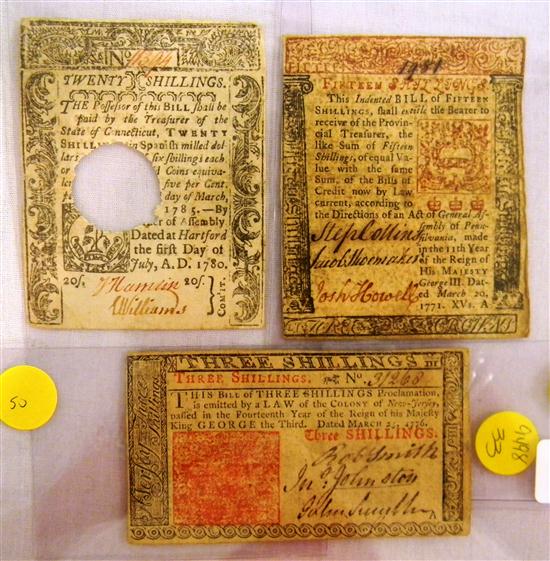 No
TWENTY SHILLINGS.
THE Possessor of this BILL shall be
paid by the Treasurer of the
State of Connecticut, TWENTY
SHILL in Spanish milled dol
lars six shillings each
or Coins equiva
le five per Cent.
day of March,
1785.—By
of Assembly
Dated at Hartford
the first Day of
July, A.D. 1780.
20s. Hamlin 20s.
Williams
COMTT.
1981
FIFTEEN SHILLINGS.
This Indented BILL of FIFTEEN
SHILLINGS, shall entitle the Bearer to
receive of the Provin-
cial Treasurer, the
like Sum of Fifteen
Shillings, of equal Va-
lue with the same
Sum, of the Bills of
Credit now by Law
current, according to
the Directions of an Act of General As-
sembly of Penn-
sylvania, made
in the 11th Year
of the Reign of
His MAJESTY
George III. Dat-
ed March 20,
1771. XVs. A
Step Collins
Jacob Shoemaker
Josh Howell
THREE SHILLINGS
III
THREE SHILLINGS. No. 31268
THIS BILL of THREE SHILLINGS Proclamation,
is emitted by a LAW of the COLONY of New-Jersey,
passed in the Fourteenth Year of the Reign of his Majesty
King GEORGE the Third. Dated MARCH 25, 1776.
Three SHILLINGS.
Rob Smith
Jno. Johnston
John Smyth
50
9498
33